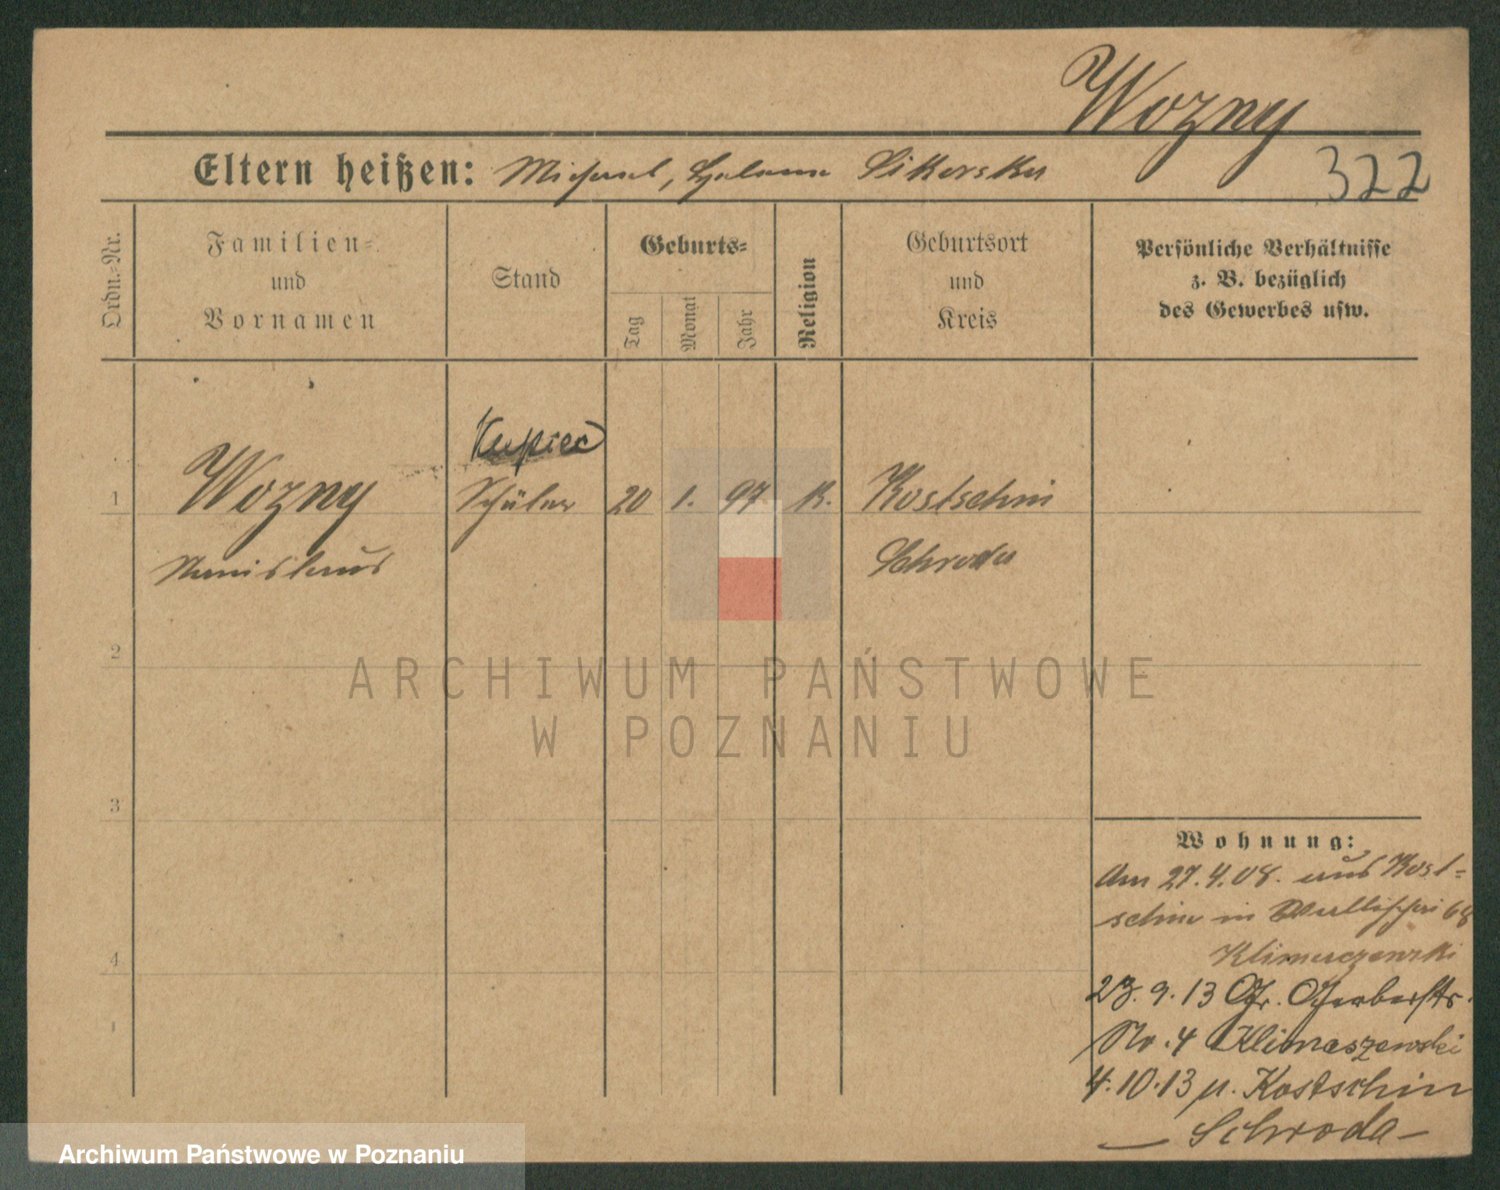 Wozny
Eltern heißen: Michael, Helena Sikorska
322
Ordn.-Nr.
Familien-
und
Vornamen
Stand
Geburts-
Tag
Monat
Jahr
Religion
Geburtsort
und
Kreis
Persönliche Verhältnisse
z. B. bezüglich
des Gewerbes usw.
Kupiec
1 Wozny Schüler 20 1. 97 K. Kostschin
Stanislaus Schroda
2
ARCHIWUM PAŃSTWOWE
W POZNANIU
3
Wohnung:
Am 27.4.08. aus Kost-
schin in Wallischei 68
Klimaczewski
4
23.9.13 Gr. Gerberstr.
No. 4 Klimaszewski
4.10.13 n. Kostschin
— Schroda —
Archiwum Państwowe w Poznaniu